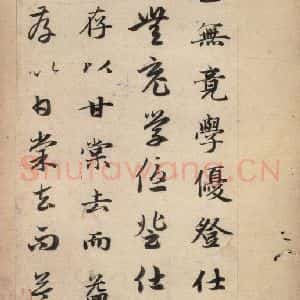 無竟學優登仕
無竟学優登仕
存以甘棠去而益
存以甘棠去而益
Shufawang.CN